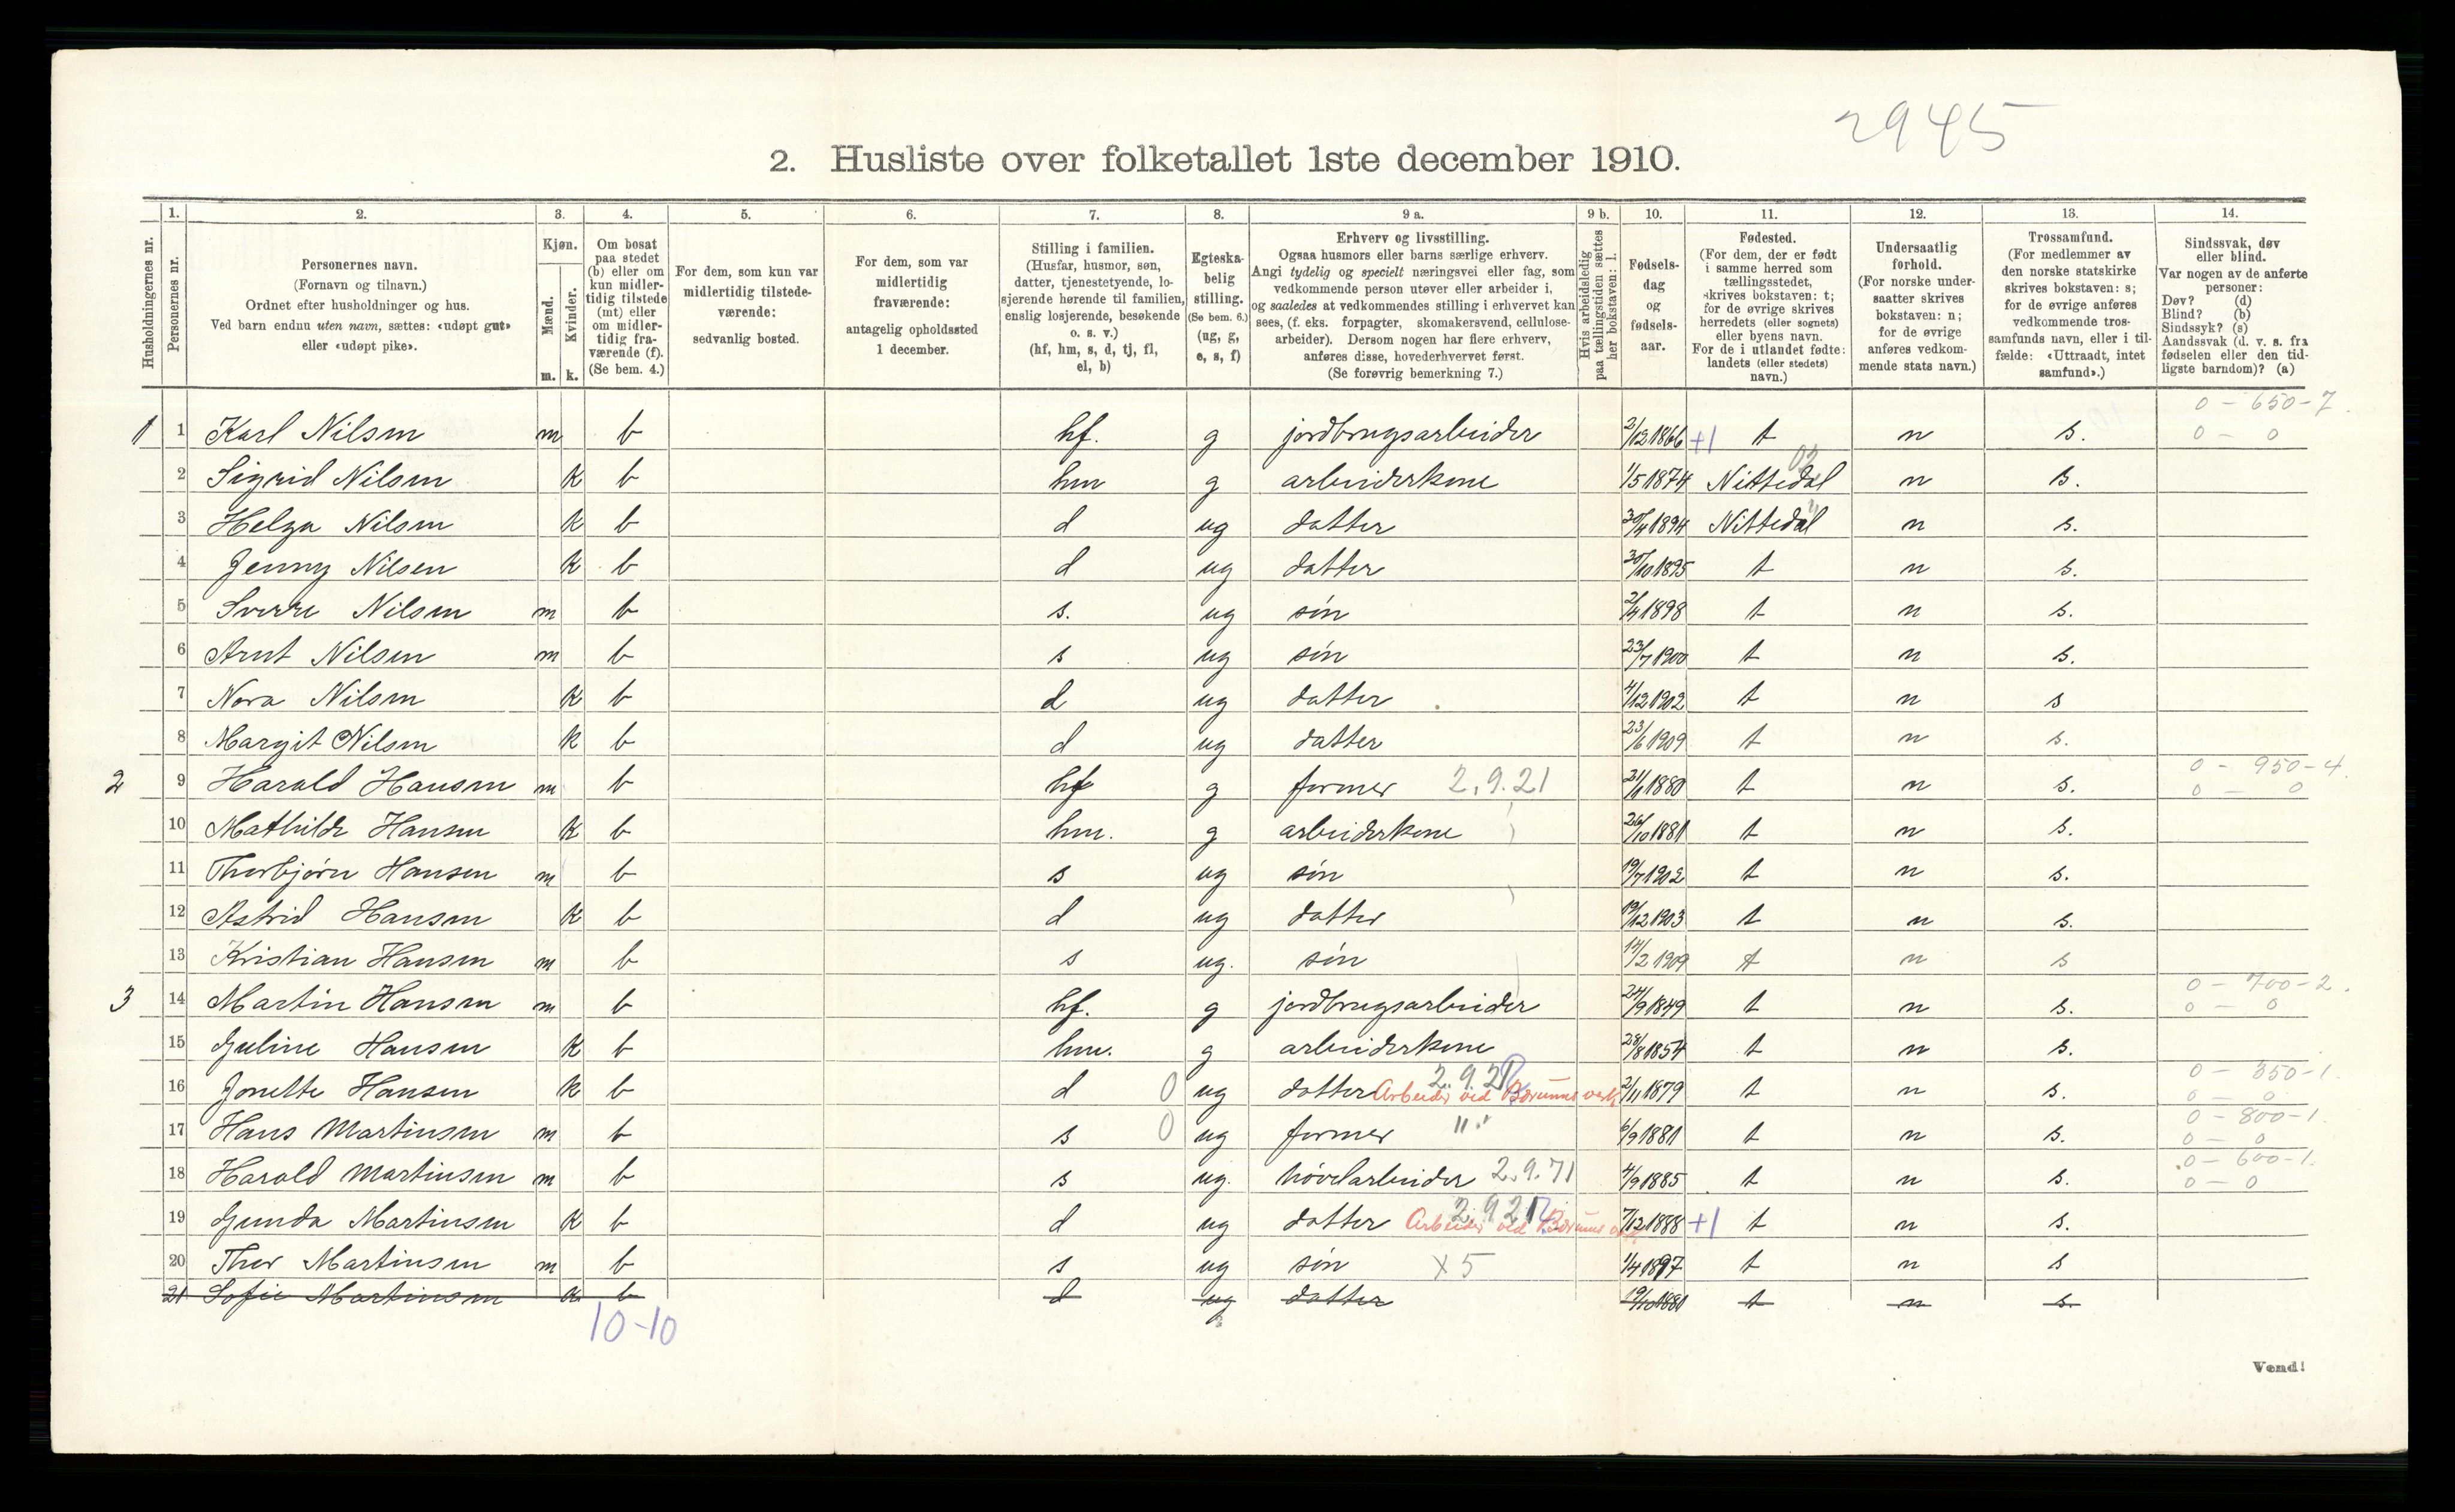 2945
2. Husliste over folketallet 1ste december 1910.
1. 2. 3. 4. 5. 6. 7. 8. 9 a. 9 b. 10. 11. 12. 13. 14.
Husholdningernes nr.
Personernes nr.
Personernes navn.
(Fornavn og tilnavn.)
Ordnet efter husholdninger og hus.
Ved barn endnu uten navn, sættes: «udøpt gut»
eller «udøpt pike».
Kjøn.
Mænd.
Kvinder.
m. k.
Om bosat
paa stedet
(b) eller om
kun midler-
tidig tilstede
(mt) eller
om midler-
tidig fra-
værende (f).
(Se bem. 4.)
For dem, som kun var
midlertidig tilstede-
værende:
sedvanlig bosted.
For dem, som var
midlertidig
fraværende:
antagelig opholdssted
1 december.
Stilling i familien.
(Husfar, husmor, søn,
datter, tjenestetyende, lo-
sjerende hørende til familien,
enslig losjerende, besøkende
o. s. v.)
(hf, hm, s, d, tj, fl,
el, b)
Egteska-
belig
stilling.
(Se bem. 6.)
(ug, g,
e, s, f)
Erhverv og livsstilling.
Ogsaa husmors eller barns særlige erhverv.
Angi tydelig og specielt næringsvei eller fag, som
vedkommende person utøver eller arbeider i,
og saaledes at vedkommendes stilling i erhvervet kan
sees, (f. eks. forpagter, skomakersvend, cellulose-
arbeider). Dersom nogen har flere erhverv,
anføres disse, hovederhvervet først.
(Se forøvrig bemerkning 7.)
Hvis arbeidsledig
paa tællingstiden sættes
her bokstaven: l.
Fødsels-
dag
og
fødsels-
aar.
Fødested.
(For dem, der er født
i samme herred som
tællingsstedet,
skrives bokstaven: t;
for de øvrige skrives
herredets (eller sognets)
eller byens navn.
For de i utlandet fødte:
landets (eller stedets)
navn.)
Undersaatlig
forhold.
(For norske under-
saatter skrives
bokstaven: n;
for de øvrige
anføres vedkom-
mende stats navn.)
Trossamfund.
(For medlemmer av
den norske statskirke
skrives bokstaven: s;
for de øvrige anføres
vedkommende tros-
samfunds navn, eller i til-
fælde: «Uttraadt, intet
samfund».)
Sindssvak, døv
eller blind.
Var nogen av de anførte
personer:
Døv? (d)
Blind? (b)
Sindssyk? (s)
Aandssvak (d. v. s. fra
fødselen eller den tid-
ligste barndom)? (a)
0 - 650 - 7.
1 1 Karl Nilsen m b hf. g jordbrugsarbeider 2/12 1866 +1 t n s. 0 - 0
2 Sigrid Nilsen K b hm g arbeiderkone 1/5 1874 Nittedal n s.
3 Helga Nilsen K b d ug datter 30/4 1894 Nittedal n s.
4 Jenny Nilsen K b d ug datter 30/10 1895 t n s.
5 Sverre Nilsen m b s. ug søn 2/4 1898 t n s.
6 Arnt Nilsen m b s ug søn 23/7 1900 t n s.
7 Nora Nilsen K b d ug datter 4/12 1902 t n s
8 Margit Nilsen k b d ug datter 23/6 1909 t n s.
0 - 950 - 4.
2 9 Harald Hansen m b hf g former 2.9.21 21/1 1880 t n s. 0 - 0
10 Mathilde Hansen K b hm. g arbeiderkone 26/10 1881 t n s.
11 Thorbjørn Hansen m b s ug søn 19/7 1902 t n s.
12 Astrid Hansen K b d ug datter 19/12 1903 t n s.
13 Kristian Hansen m b s ug. søn 14/2 1909 t n s
0 - 700 - 2.
3 14 Martin Hansen m b hf. g jordbrugsarbeider 24/9 1849 t n s. 0 - 0
15 Guline Hansen K b hm. g arbeiderkone 28/8 1854 t n s.
2.9.21 0 - 350 - 1.
16 Jonette Hansen k b d 0 ug datter Arbeider ved Bærums verk 2/11 1879 t n s. 0 - 0
0 - 800 - 1.
17 Hans Martinsen m b s 0 ug former 11." 6/9 1881 t n s. 0 - 0
0 - 600 - 1.
18 Harald Martinsen m b s ug. høvelarbeider 2.9.71 4/9 1885 t n s. 0 - 0
2.9.21
19 Gunda Martinsen K b d ug datter Arbeider ved Bærums verk 7/12 1888 +1 t n s.
20 Thor Martinsen m b s ug søn x5 1/4 1897 t n s
21 Sofie Martinsen k b d ug datter 19/10 1881 t n s.
10-10
Vend!